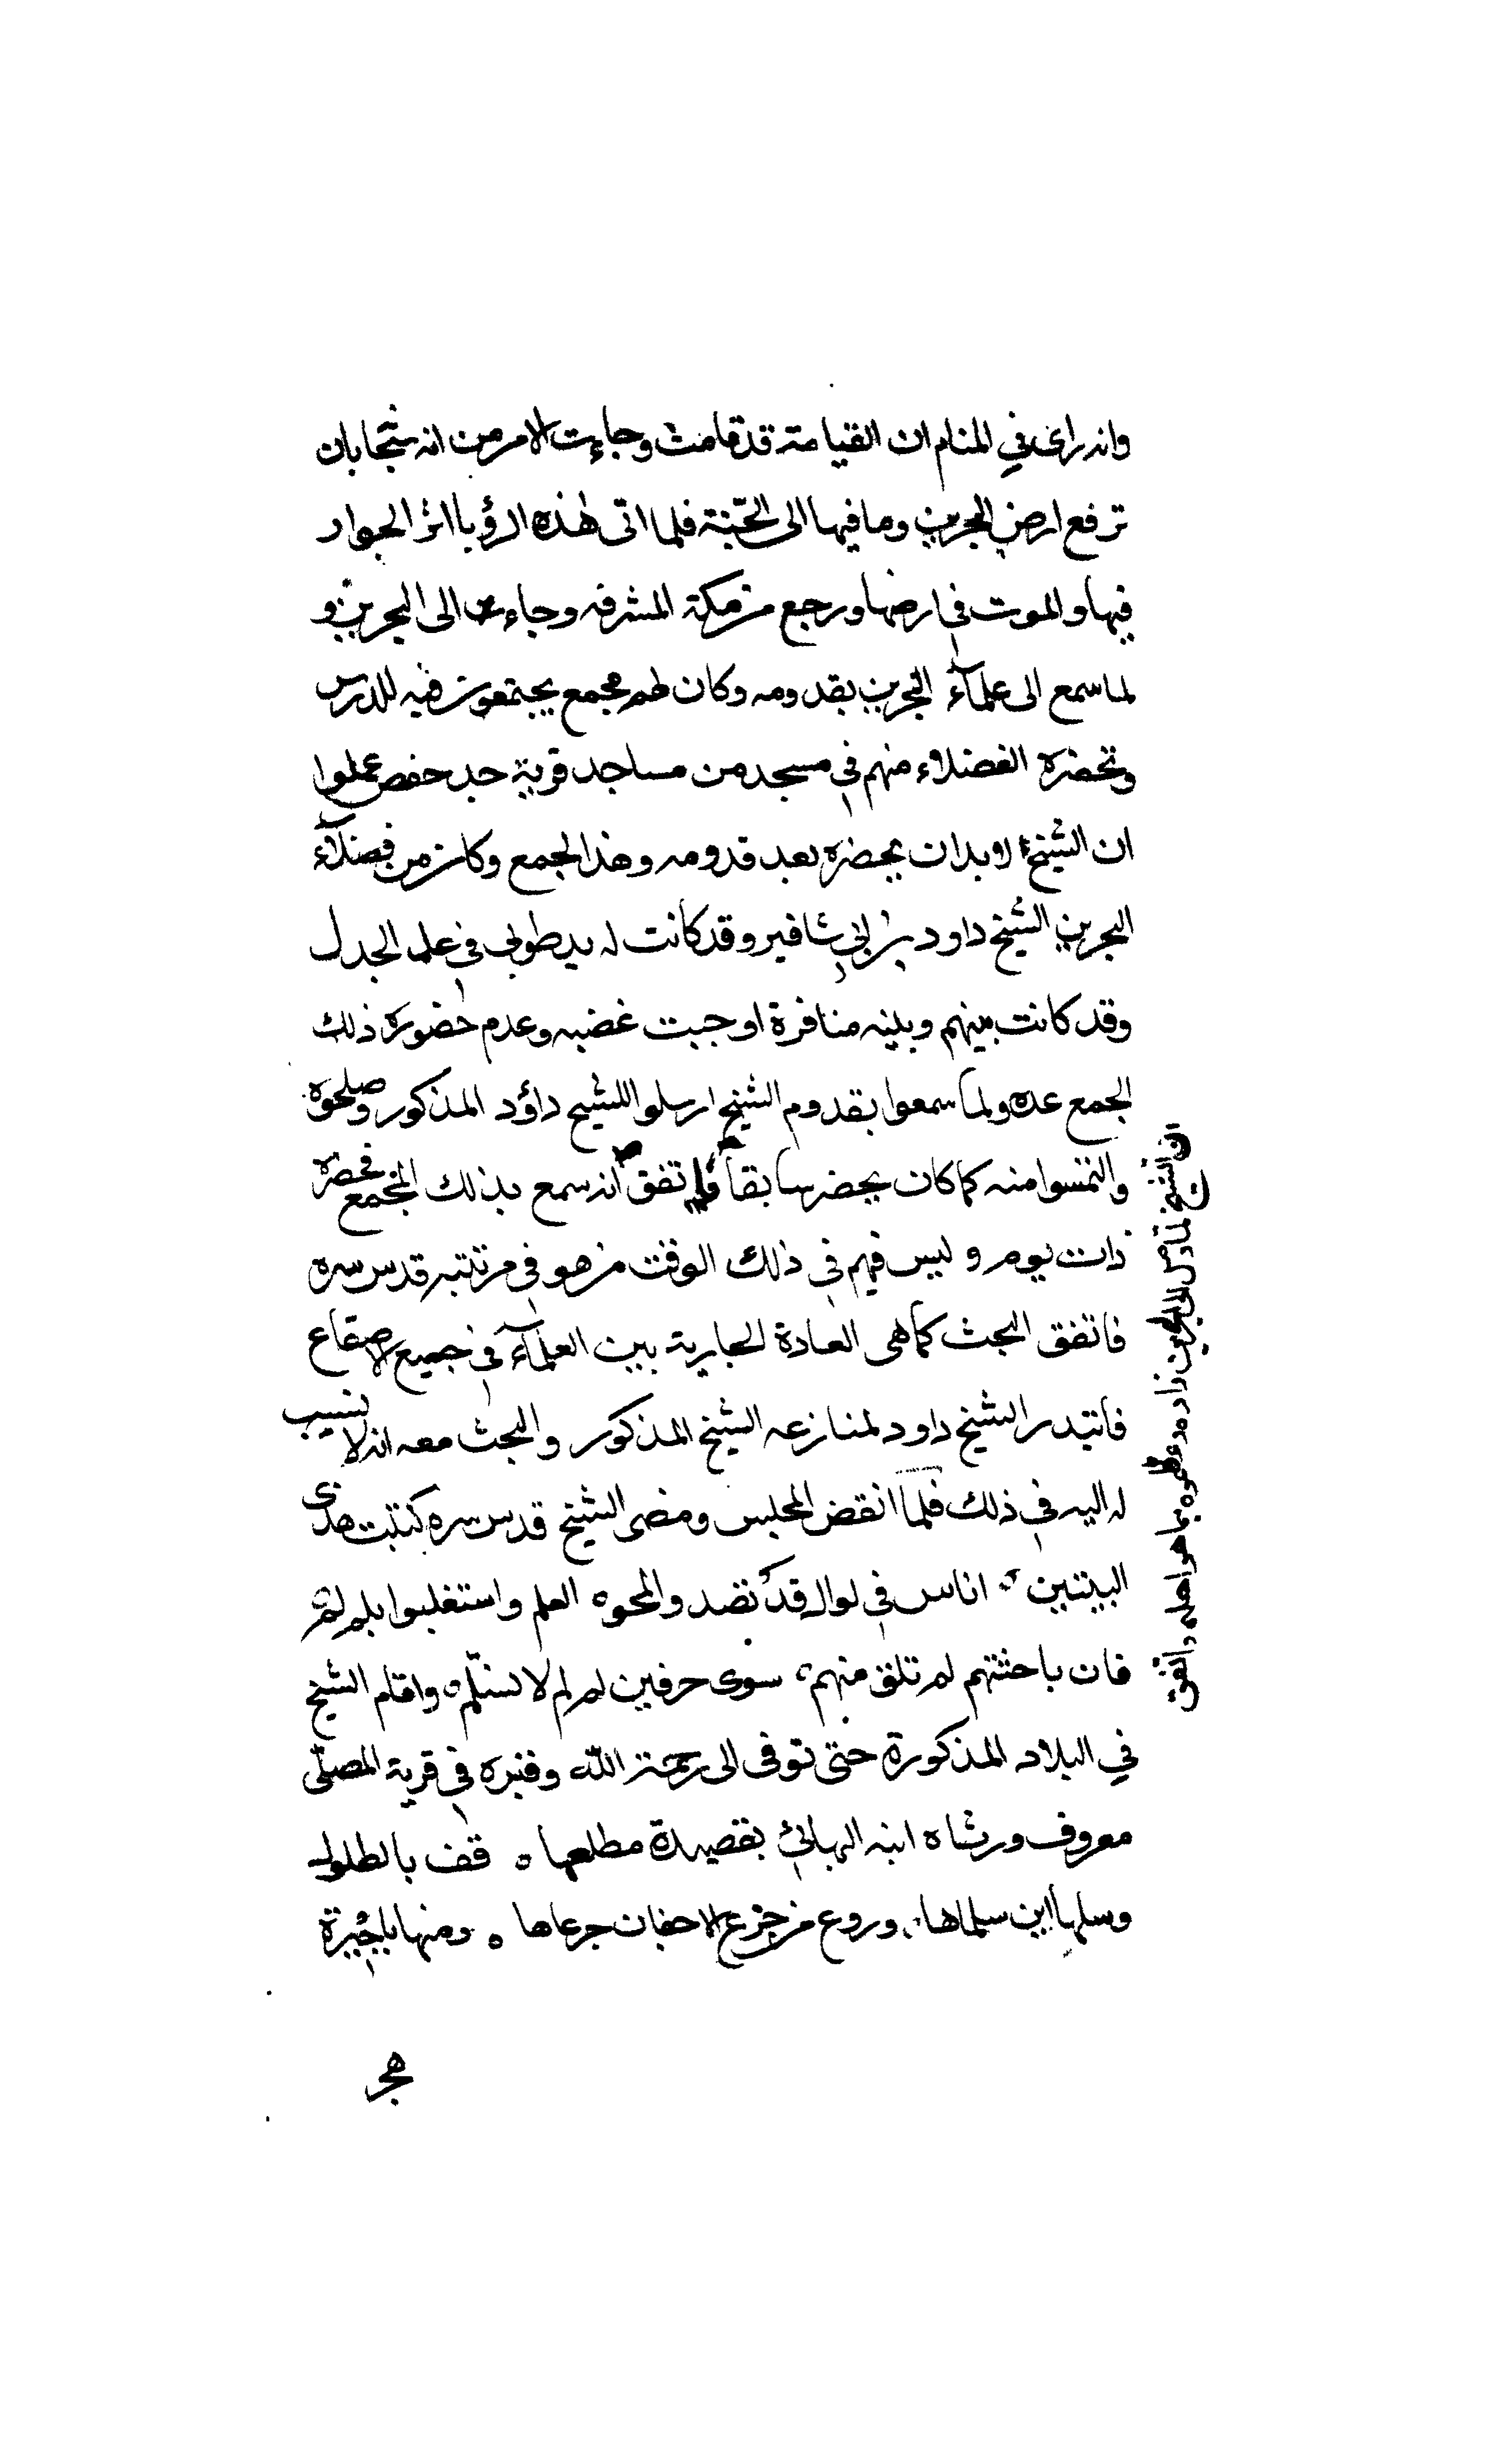 وانه راى في المنام ان القيامة قد قامت وجاءت الامر من انه سبحانه بان
ترفع ارض البحرين وما فيها الى الجنة فلما اتى هذه الرؤيا اثر الجوار
فيها والموت في ارضها ورجع من مكة المشرفه وجاء الى البحرين و
لما سمع الى علمآء البحرين بقدومه وكان لهم مجمع يجتمعون فيه للدرس
وتحضره الفضلاء منهم في مسجد من مساجد قرية جد حفص عملوا
ان الشيخ لا بد ان يحضره بعد قدومه وهذا الجمع وكان من فضلآء
البحرين الشيخ داود بن ابي شافير وقد كانت له يد طولى في علم الجدل
وقد كانت بينهم وبينه منافرة اوجبت غضبه وعدم حضوره ذلك
الجمع عده ولما سمعوا بقدوم الشيخ ارسلوا للشيخ داؤد المذكور وصلحوه
والتمسوا منه كما كان يحضر سابقا فاتفق انه سمع بذلك المجمع فحضره
ذات يوم و ليس فيهم في ذلك الوقت من هو في مرتبته قدس سره
فاتفق البحث كما هى العادة الجارية بين العلمآء في جميع الاصقاع
فانتدر الشيخ داود لمنازعه الشيخ المذكور والبحث معه انه لا نسيب
له اليه في ذلك فلما انقض المجلس ومضى الشيخ قدس سره كتبت هذى
البيتين اناس في اوال قد تصدوا لمحوه العلم واستغلبوا بلم لم
فان باحثتهم لم تلق منهم سوى حرفين لم لم لا نسلم واقام الشيخ
في البلاد المذكورة حتى توفى الى رحمة الله وقبره في قرية المصلى
معروف ورثاه ابنه البهائي بقصيدة مطلعها قف بالطلول
وسلها اين سلماها وروع من جزع الاجفان جرعاها ومنها يا جيرة
هجر
ان الشيخ لما وصل الى البحرين زاده وعظموه بما هو اهله واتفق